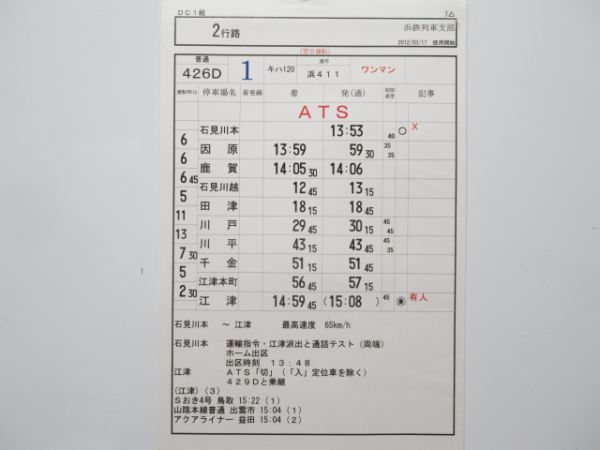 DC1組 7△
2行路 浜鉄列車支部
2012/03/17 使用開始
(翌日運転)
普通 426D 1 キハ120 運用 浜411 ワンマン
運転時分 停車場名 着発線 着 発(通) 制限速度 記事
ATS
石見川本 13:53 40 ○ X
6
因原 13:59 59 30 35 35
6
鹿賀 14:05 30 14:06
6 45
石見川越 12 45 13 15
5
田津 18 15 18 45
11
川戸 29 45 30 15 45 45
13
川平 43 15 43 45 45 35
7 30
千金 51 15 51 45
5
江津本町 56 45 57 15
2 30
江津 14:59 45 (15:08) 45 有人
石見川本 ~ 江津 最高速度 65km/h
石見川本 運輸指令・江津派出と通話テスト(両端)
ホーム出区
出区時刻 13:48
江津 ATS「切」(「入」定位車を除く)
429Dと乗継
(江津)(3)
Sおき4号 鳥取 15:22(1)
山陰本線普通 出雲市 15:04(1)
アクアライナー 益田 15:04(2)